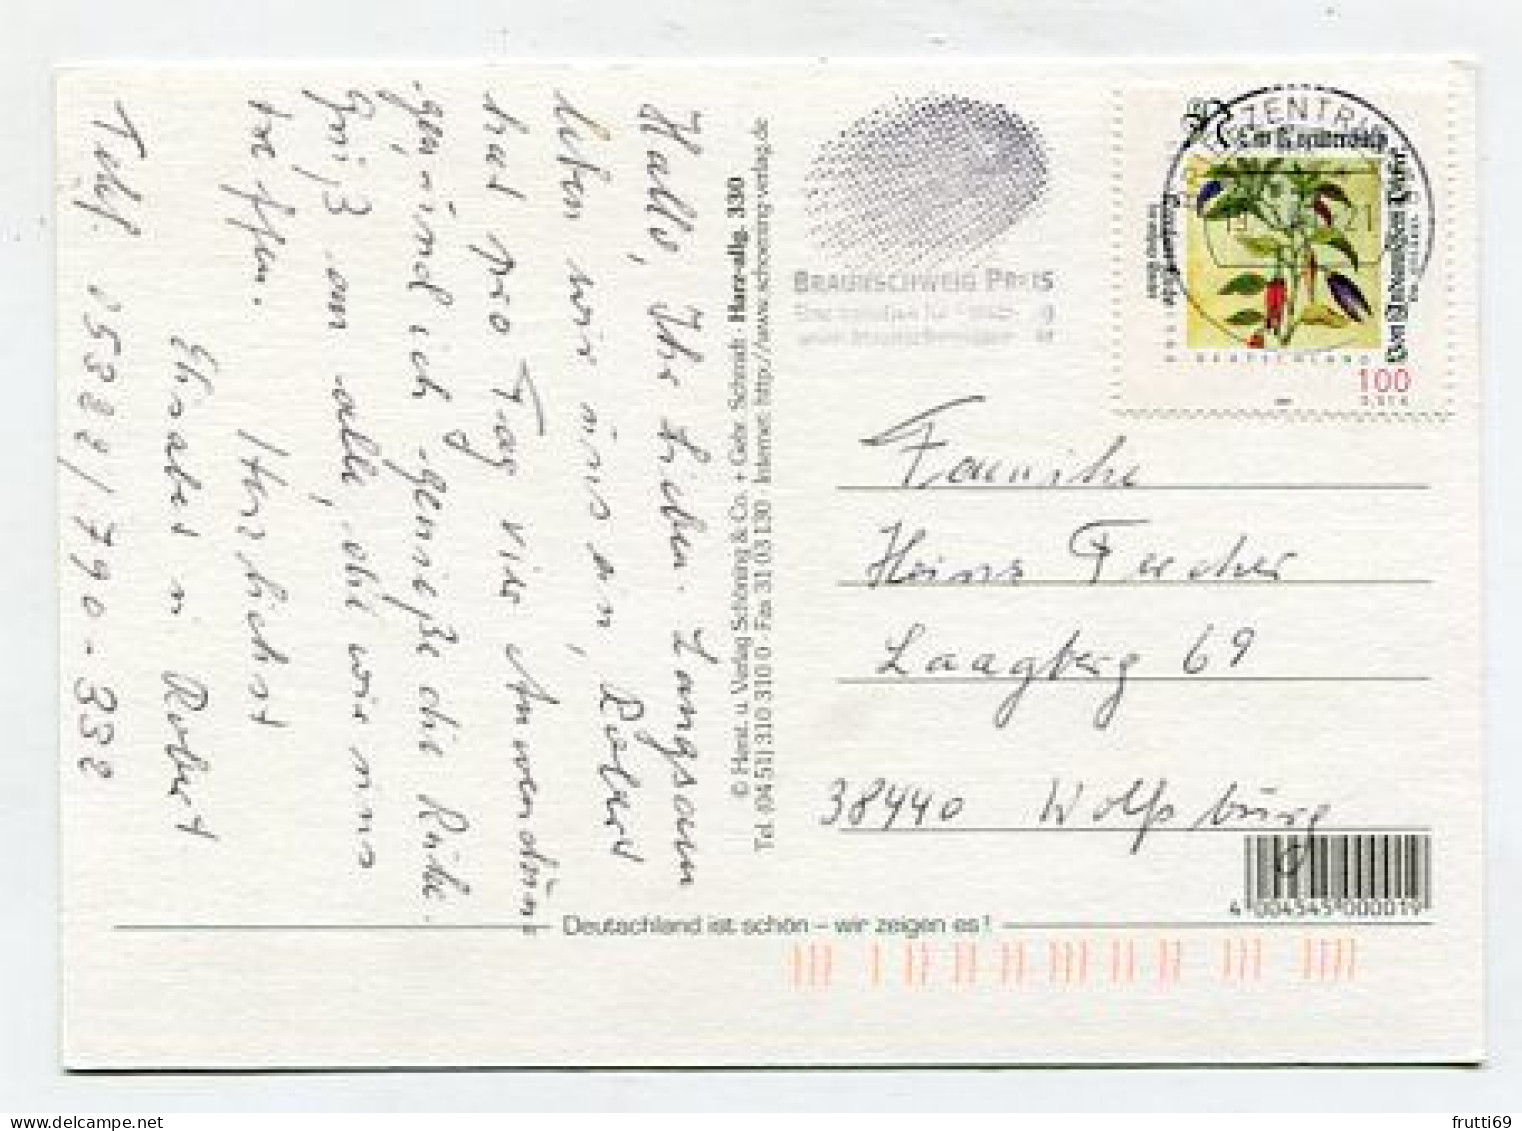 Hallo, Ihr Lieben. Langsam
leben wir uns ein, Robert
hat pro Tag vier Anwendun-
gen und ich genieße die Ruhe.
Gruß an alle, die wir uns
treffen.
Herzlichst
u. Robert
Tel. 05322/790-332
© Herst. u. Verlag Schöning & Co. + Gebr. Schmidt · Harz-allg. 330
Tel. (04 51) 310 310 0 · Fax 31 03 130 · Internet: http://www.schoening-verlag.de
BRAUNSCHWEIG PREIS
BRIEFZENTRUM
DEUTSCHLAND
100
0,51 €
Familie
Heinz
Laagberg 69
38440 Wolfsburg
4 004545 000019
Deutschland ist schön – wir zeigen es!
frutti69